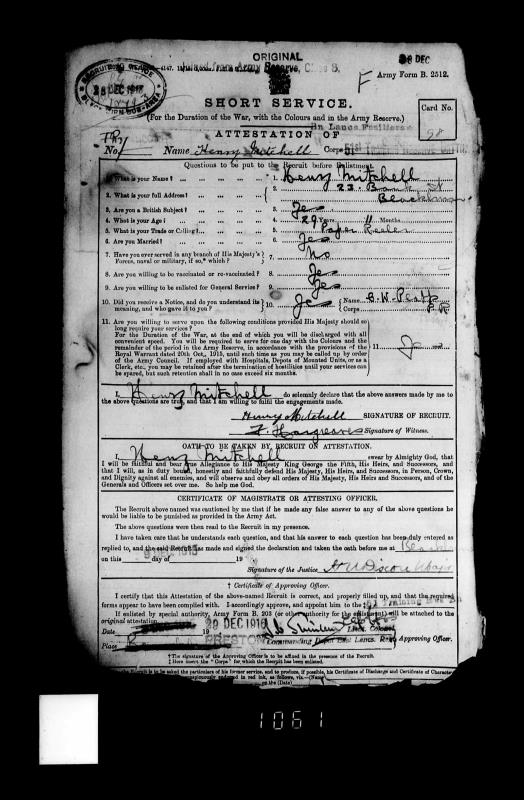 ORIGINAL
28 DEC
Army Reserve, Class B.
F Army Form B. 2512.
RECRUITING OFFICE
28 DEC 1916
SHORT SERVICE.
(For the Duration of the War, with the Colours and in the Army Reserve.)
Card No.
98
Bn Lancs Fusiliers
ATTESTATION OF
No. Name Henry Mitchell Corps 51st
Questions to be put to the Recruit before Enlistment.
1. What is your Name? ... 1. Henry Mitchell
2. What is your full Address? ... 2. 23. Bank St
3. Are you a British Subject? ... 3. Yes
4. What is your Age? ... 4. 29 Years 11 Months
5. What is your Trade or Calling? ... 5. Paper Reeler
6. Are you Married? ... 6. Yes
7. Have you ever served in any branch of His Majesty's Forces, naval or military, if so,* which? 7. No
8. Are you willing to be vaccinated or re-vaccinated? 8. Yes
9. Are you willing to be enlisted for General Service? 9. Yes
10. Did you receive a Notice, and do you understand its meaning, and who gave it to you? 10. Yes Name
Corps
11. Are you willing to serve upon the following conditions provided His Majesty should so long require your services?
For the Duration of the War, at the end of which you will be discharged with all
convenient speed. You will be required to serve for one day with the Colours and the
remainder of the period in the Army Reserve, in accordance with the provisions of the
Royal Warrant dated 20th Oct., 1915, until such time as you may be called up by order
of the Army Council. If employed with Hospitals, Depots of Mounted Units, or as a
Clerk, etc., you may be retained after the termination of hostilities until your services can
be spared, but such retention shall in no case exceed six months.
11
I, Henry Mitchell do solemnly declare that the above answers made by me to
the above questions are true, and that I am willing to fulfil the engagements made.
Henry Mitchell SIGNATURE OF RECRUIT.
F. Hargreaves Signature of Witness.
OATH TO BE TAKEN BY RECRUIT ON ATTESTATION.
I, Henry Mitchell swear by Almighty God, that
I will be faithful and bear true Allegiance to His Majesty King George the Fifth, His Heirs, and Successors, and
that I will, as in duty bound, honestly and faithfully defend His Majesty, His Heirs, and Successors, in Person, Crown,
and Dignity against all enemies, and will observe and obey all orders of His Majesty, His Heirs and Successors, and of the
Generals and Officers set over me. So help me God.
CERTIFICATE OF MAGISTRATE OR ATTESTING OFFICER.
The Recruit above named was cautioned by me that if he made any false answer to any of the above questions he
would be liable to be punished as provided in the Army Act.
The above questions were then read to the Recruit in my presence.
I have taken care that he understands each question, and that his answer to each question has been duly entered as
replied to, and the said Recruit has made and signed the declaration and taken the oath before me at
on this day of 19
Signature of the Justice
† Certificate of Approving Officer.
I certify that this Attestation of the above-named Recruit is correct, and properly filled up, and that the required
forms appear to have been complied with. I accordingly approve, and appoint him to the‡
If enlisted by special authority, Army Form B. 203 (or other authority for the enlistment) will be attached to the
original attestation.
Date 19 29 DEC 1916
Place PRESTON
Commanding East Lancs. Approving Officer.
† The signature of the Approving Officer is to be affixed in the presence of the Recruit.
‡ Here insert the "Corps" for which the Recruit has been enlisted.
1061